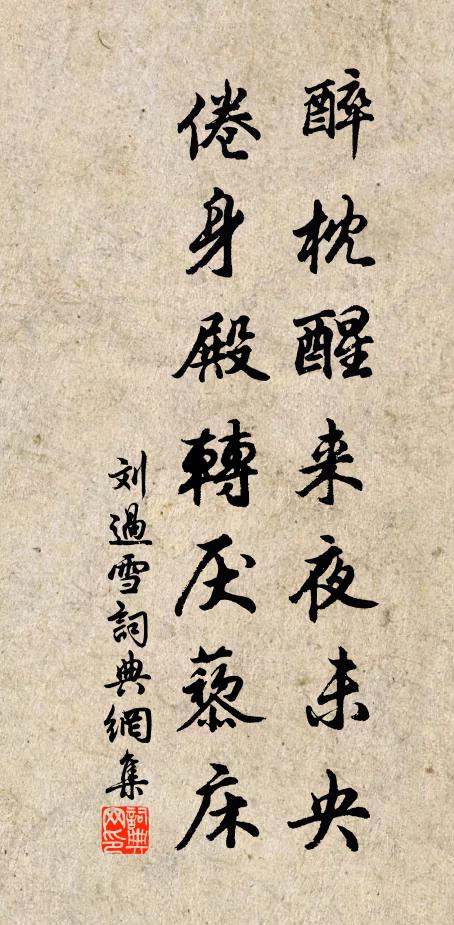 醉枕醒来夜未央
倦身殿轉厌藜床
刘過雪詞典網集
詞典网印